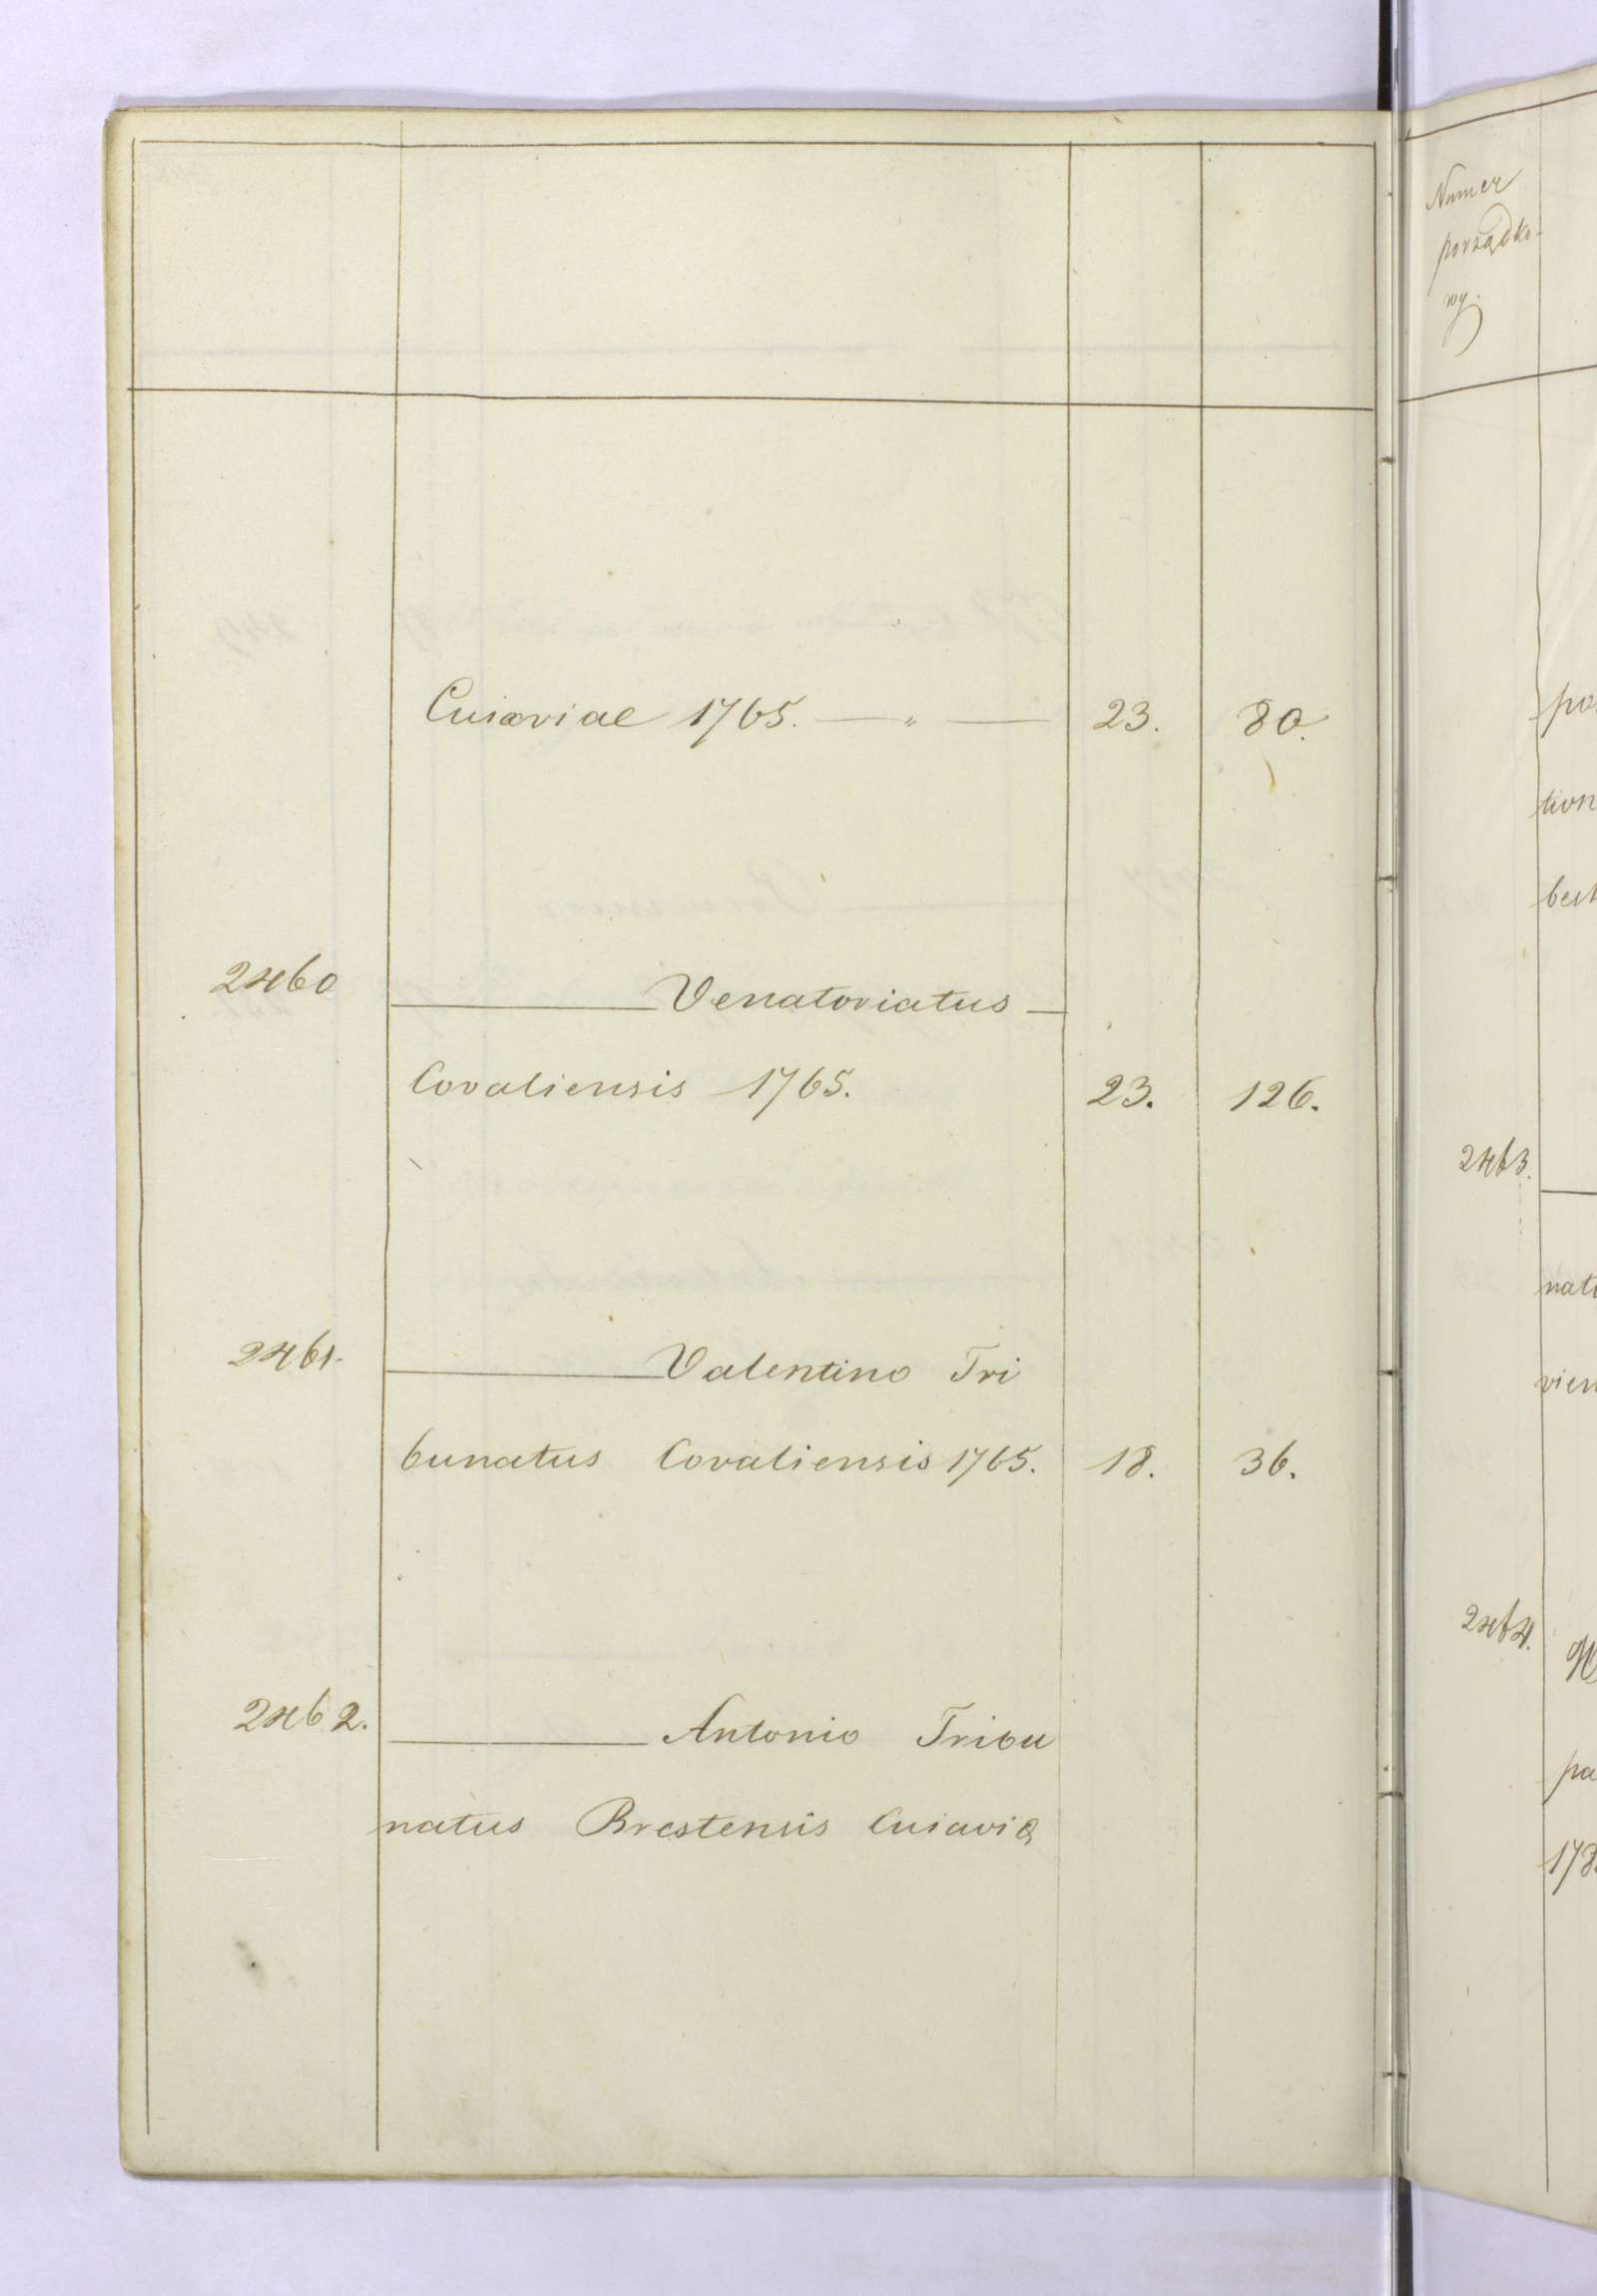 Cuiaviae 1765. — " — 23. 80.
2460 — Venatoriatus —
Covaliensis 1765. 23. 126.
2461. — Valentino Tri
bunatus Covaliensis 1765. 18. 36.
2462. — Antonio Tribu
natus Brestensis Cuiaviæ
Numer
porządko-
wy.
2463.
2464.